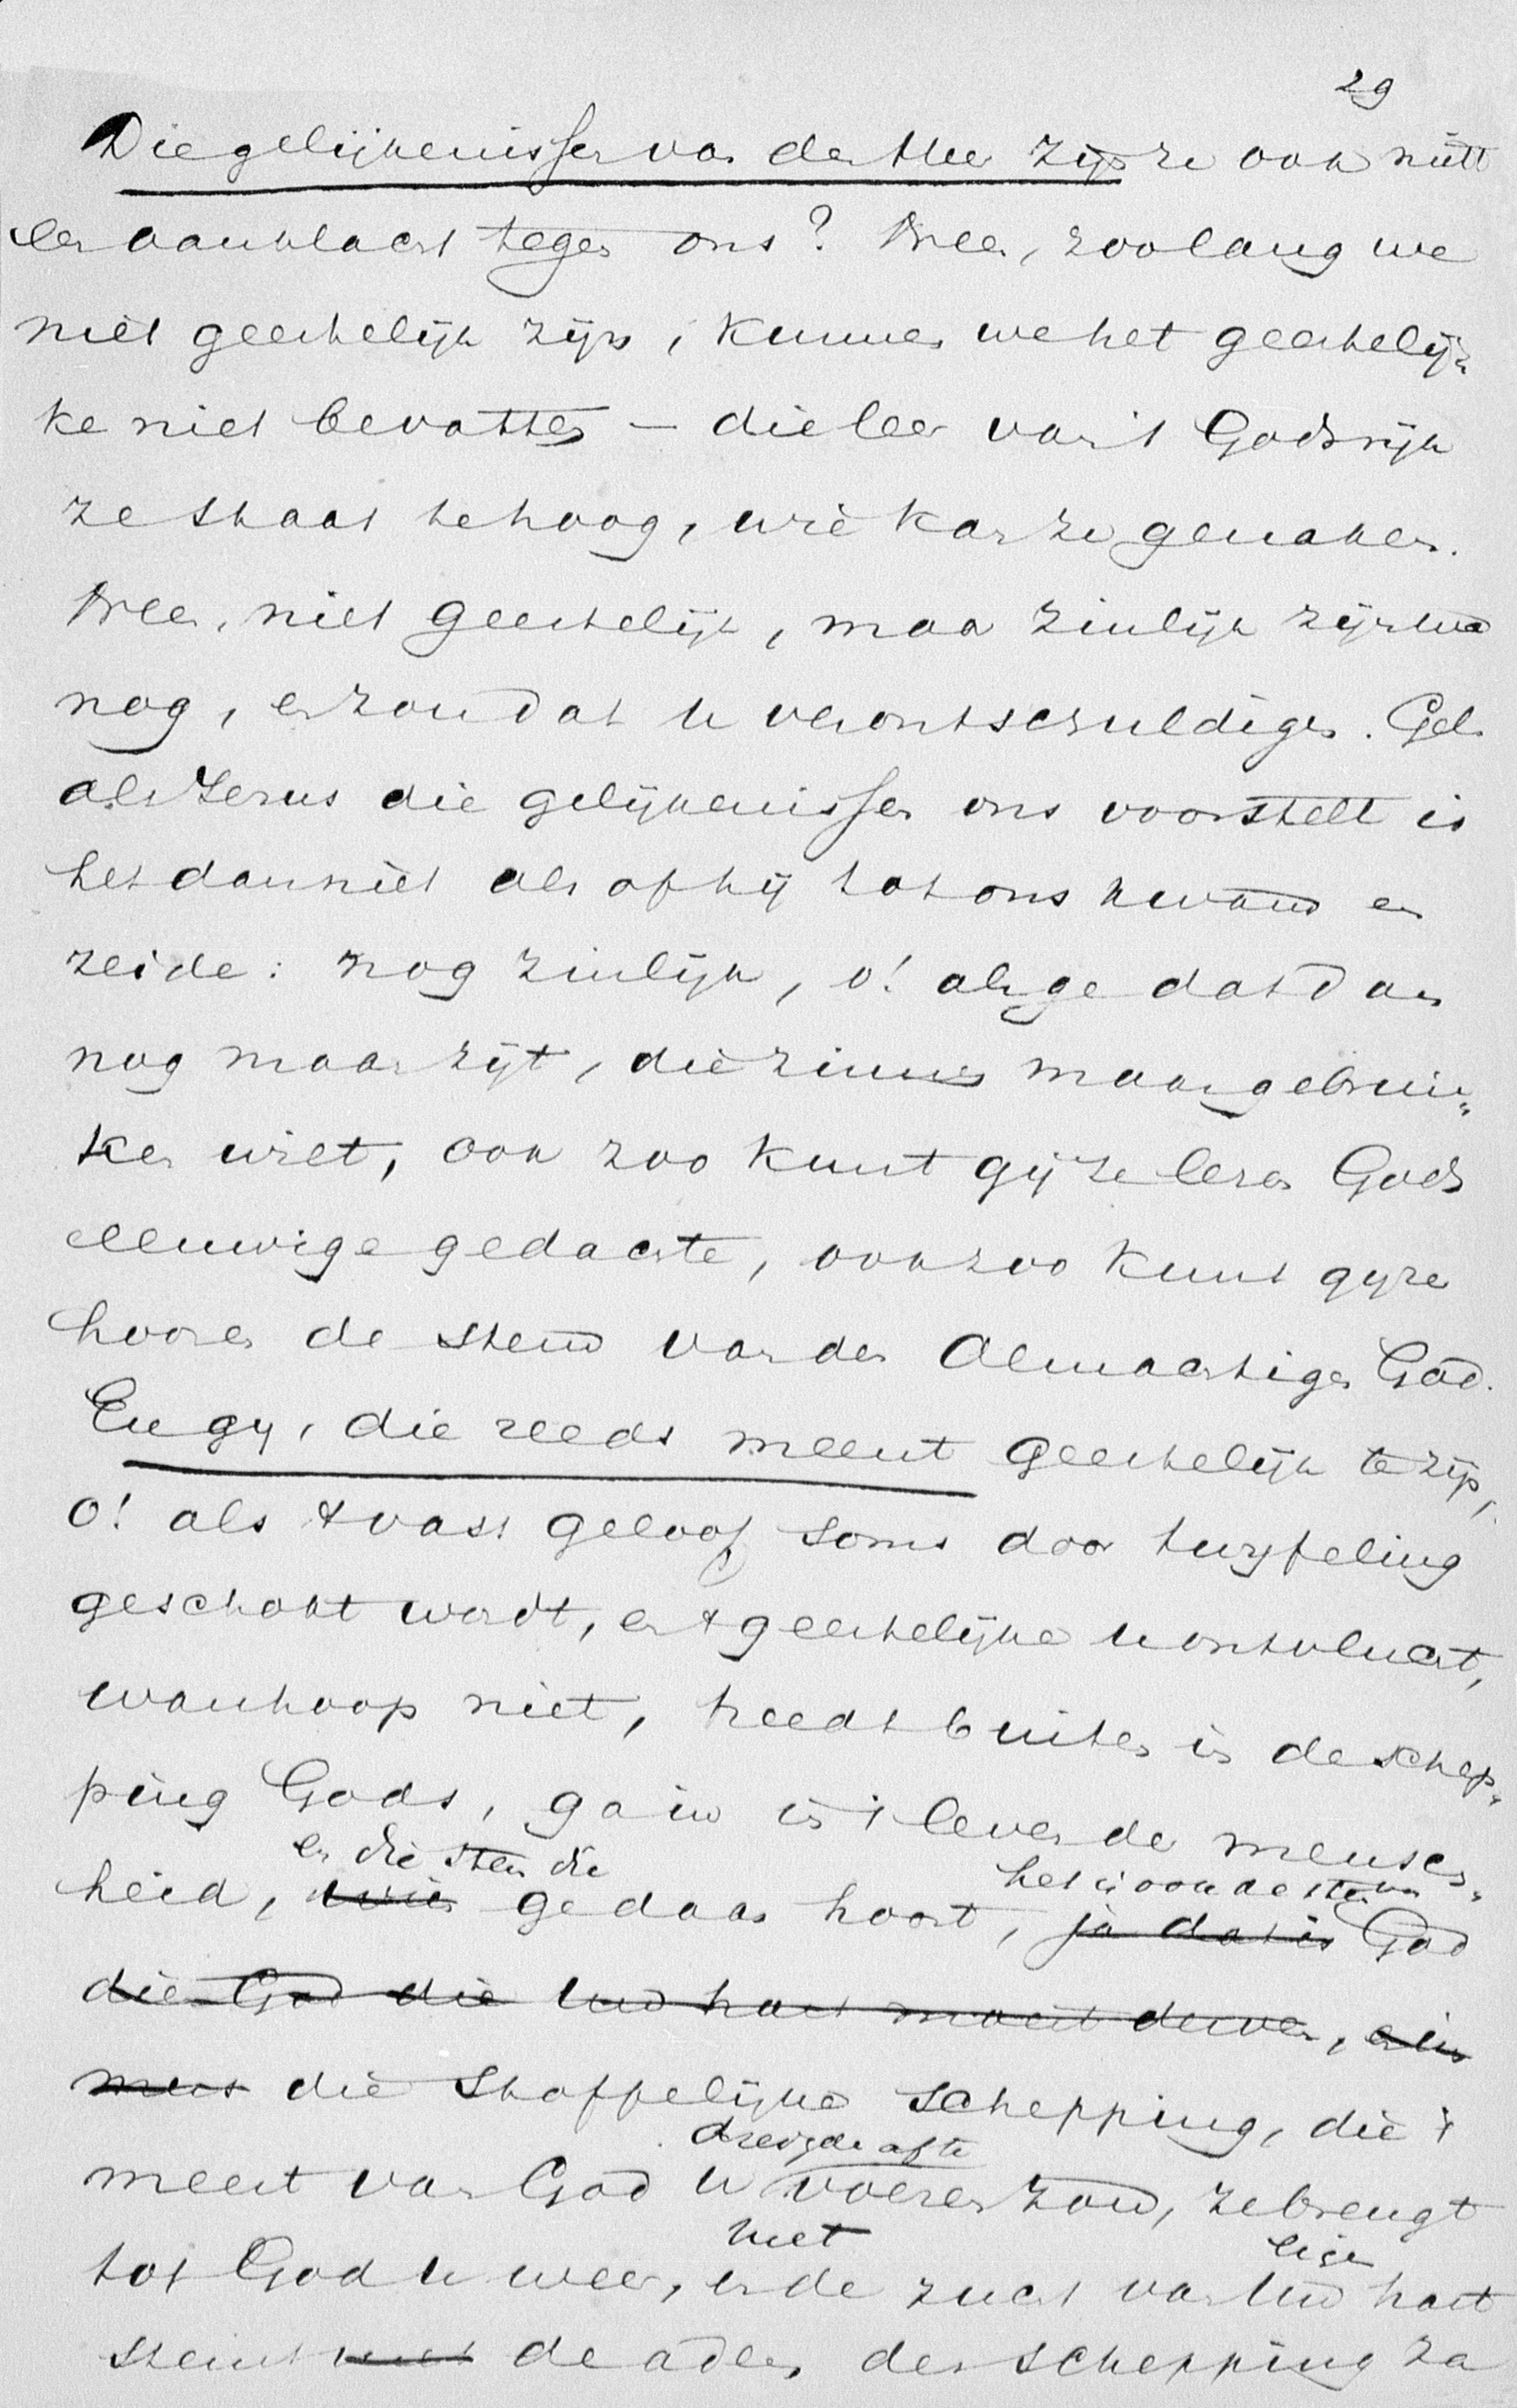 29
Die gelijkenissen van den Heer zijn ze ook niet
een aanklacht tegen ons? Neen, zoolang we
niet geestelijk zijn, kunnen we het geestelij-
ke niet bevatten – die leer van 't Godsrijk
ze staat te hoog, wie kan ze genaken.
Neen, niet geestelijk, maar zinlijk zijn we
nog, en zou dat u verontschuldigen. Gel.
als Jezus die gelijkenissen ons voorstelt is
het dan niet als of hij tot ons kwam en
zeide: nog zinlijk, o! als ge dat dan
nog maar zijt, die zinnen maar gebrui-
ken wilt, ook zoo kunt gij ze lezen Gods
eeuwige gedachte, ook zoo kunt gij ze
hooren de stem van den Almachtigen God.
En gy, die reeds meent geestelijk te zijn,
o! als 't vast geloof soms door twyfeling
geschokt wordt, en 't geestelijke u ontvlucht,
wanhoop niet, treedt buiten in de schep-
ping Gods, ga in in 't leven der mensch-
en die stem die het is ook de stem van
heid, gedaan hoort, ja dat is God
die God die Uw hart moest derven, en in
die stoffelijke schepping, die g'
dreigde af te
meent van God u voeren zou, ze brengt
met eigen
tot God u weer, en de zucht van Uw hart
stemt met de adem der schepping za